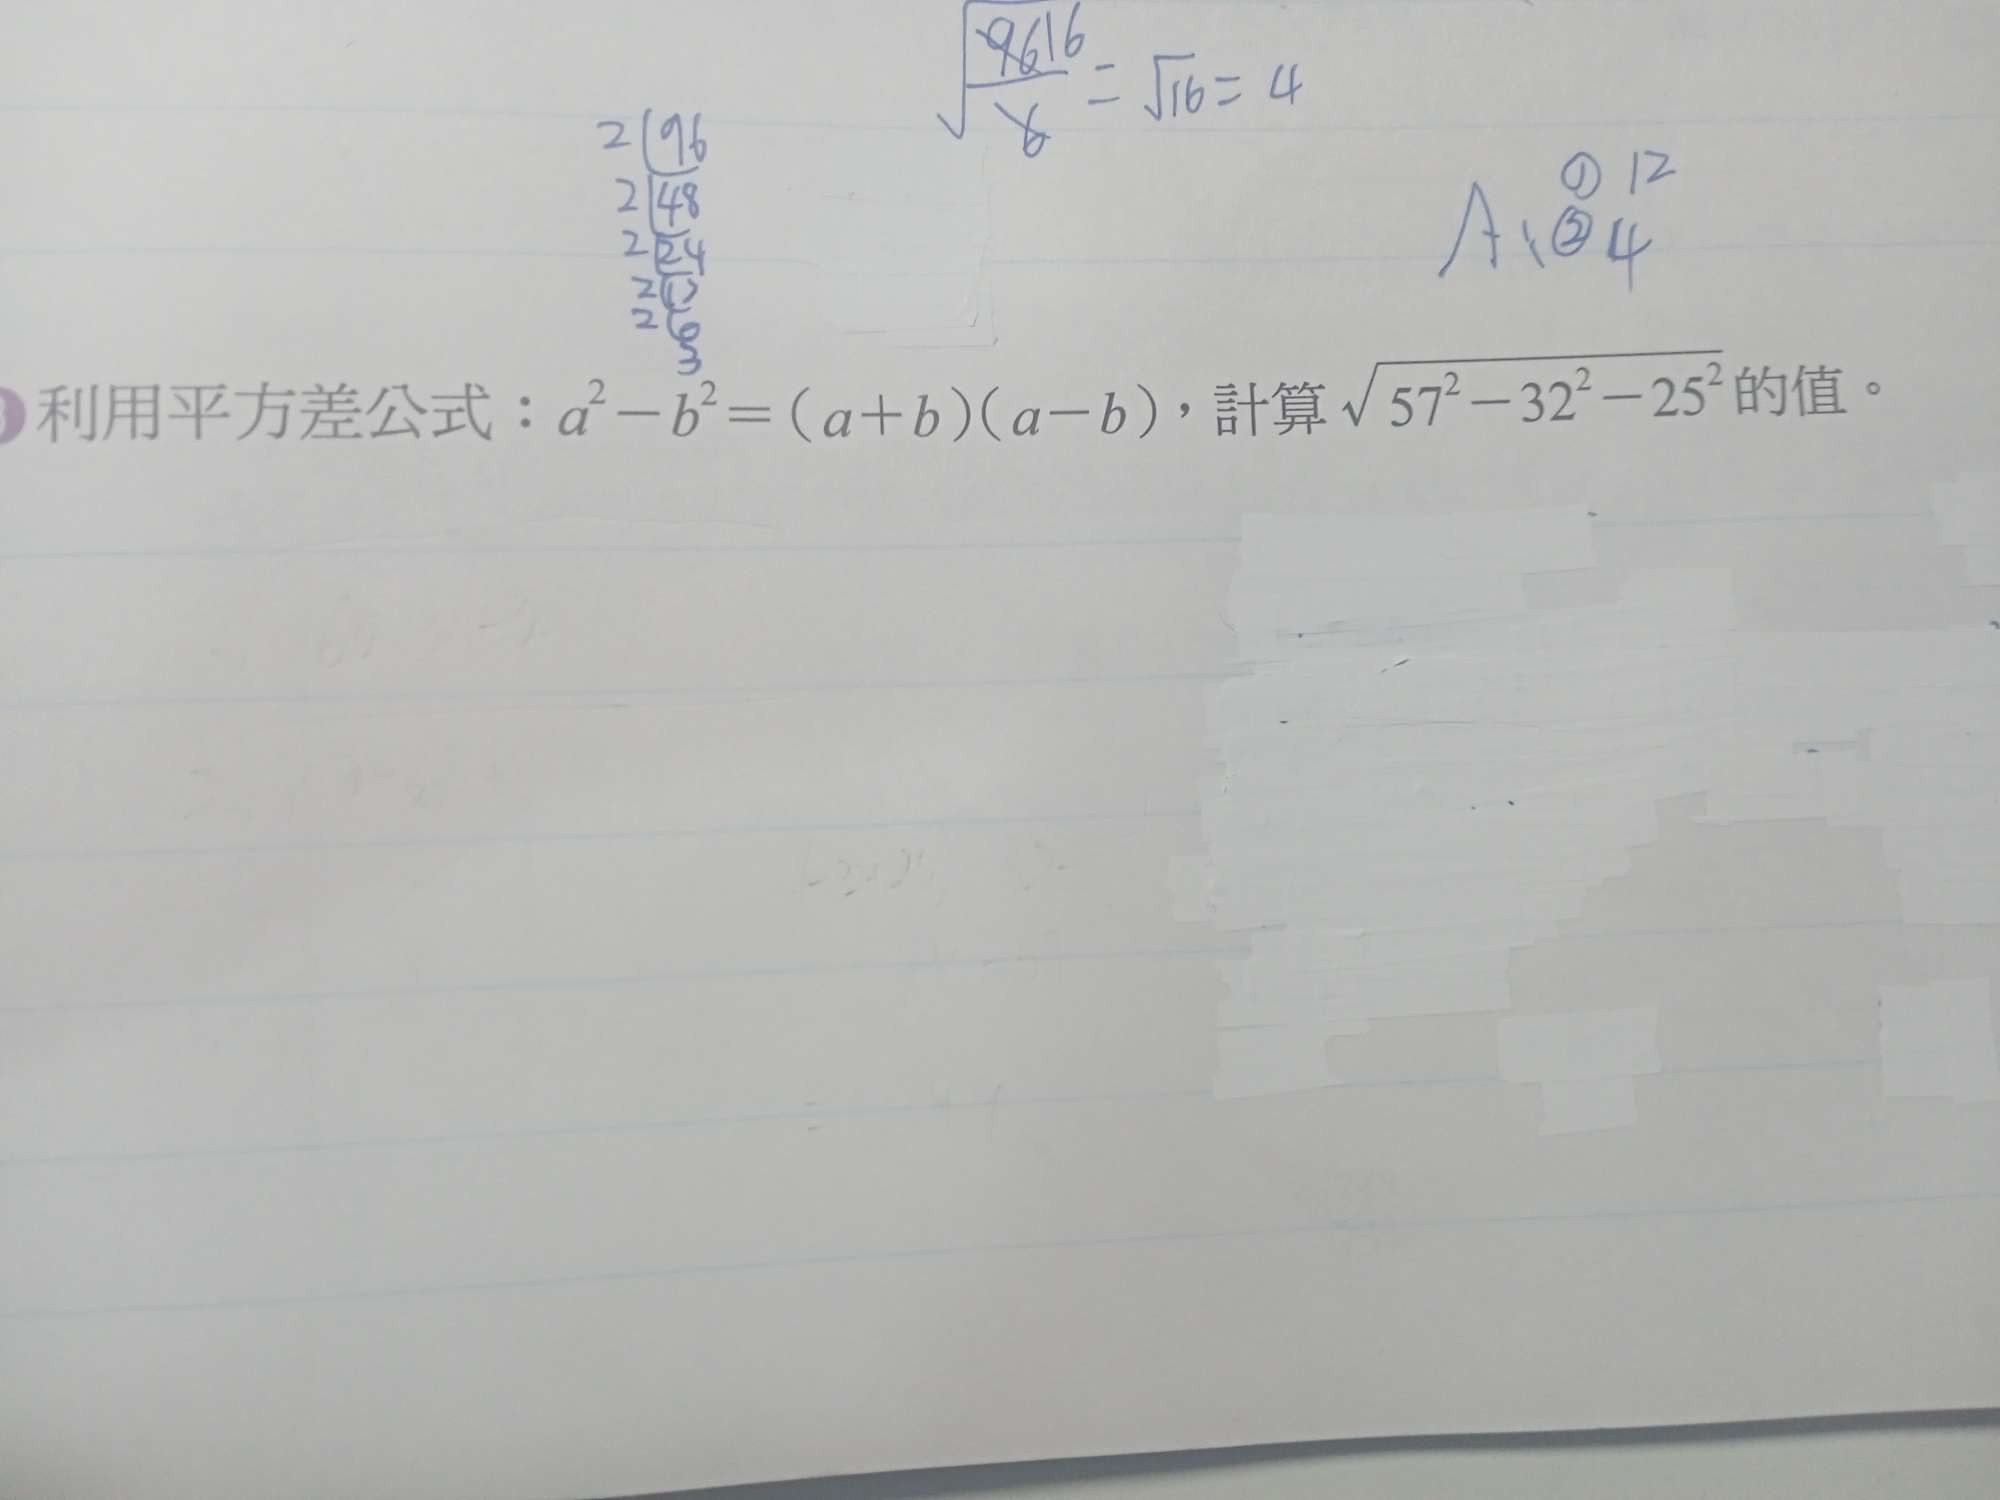 √(96̶16/6̶) = √16 = 4
2 96
2 48
2 24
2 12
2 6
3
A: ① 12
② 4
利用平方差公式：a²－b²＝(a＋b)(a－b)，計算√(57²－32²－25²)的值。